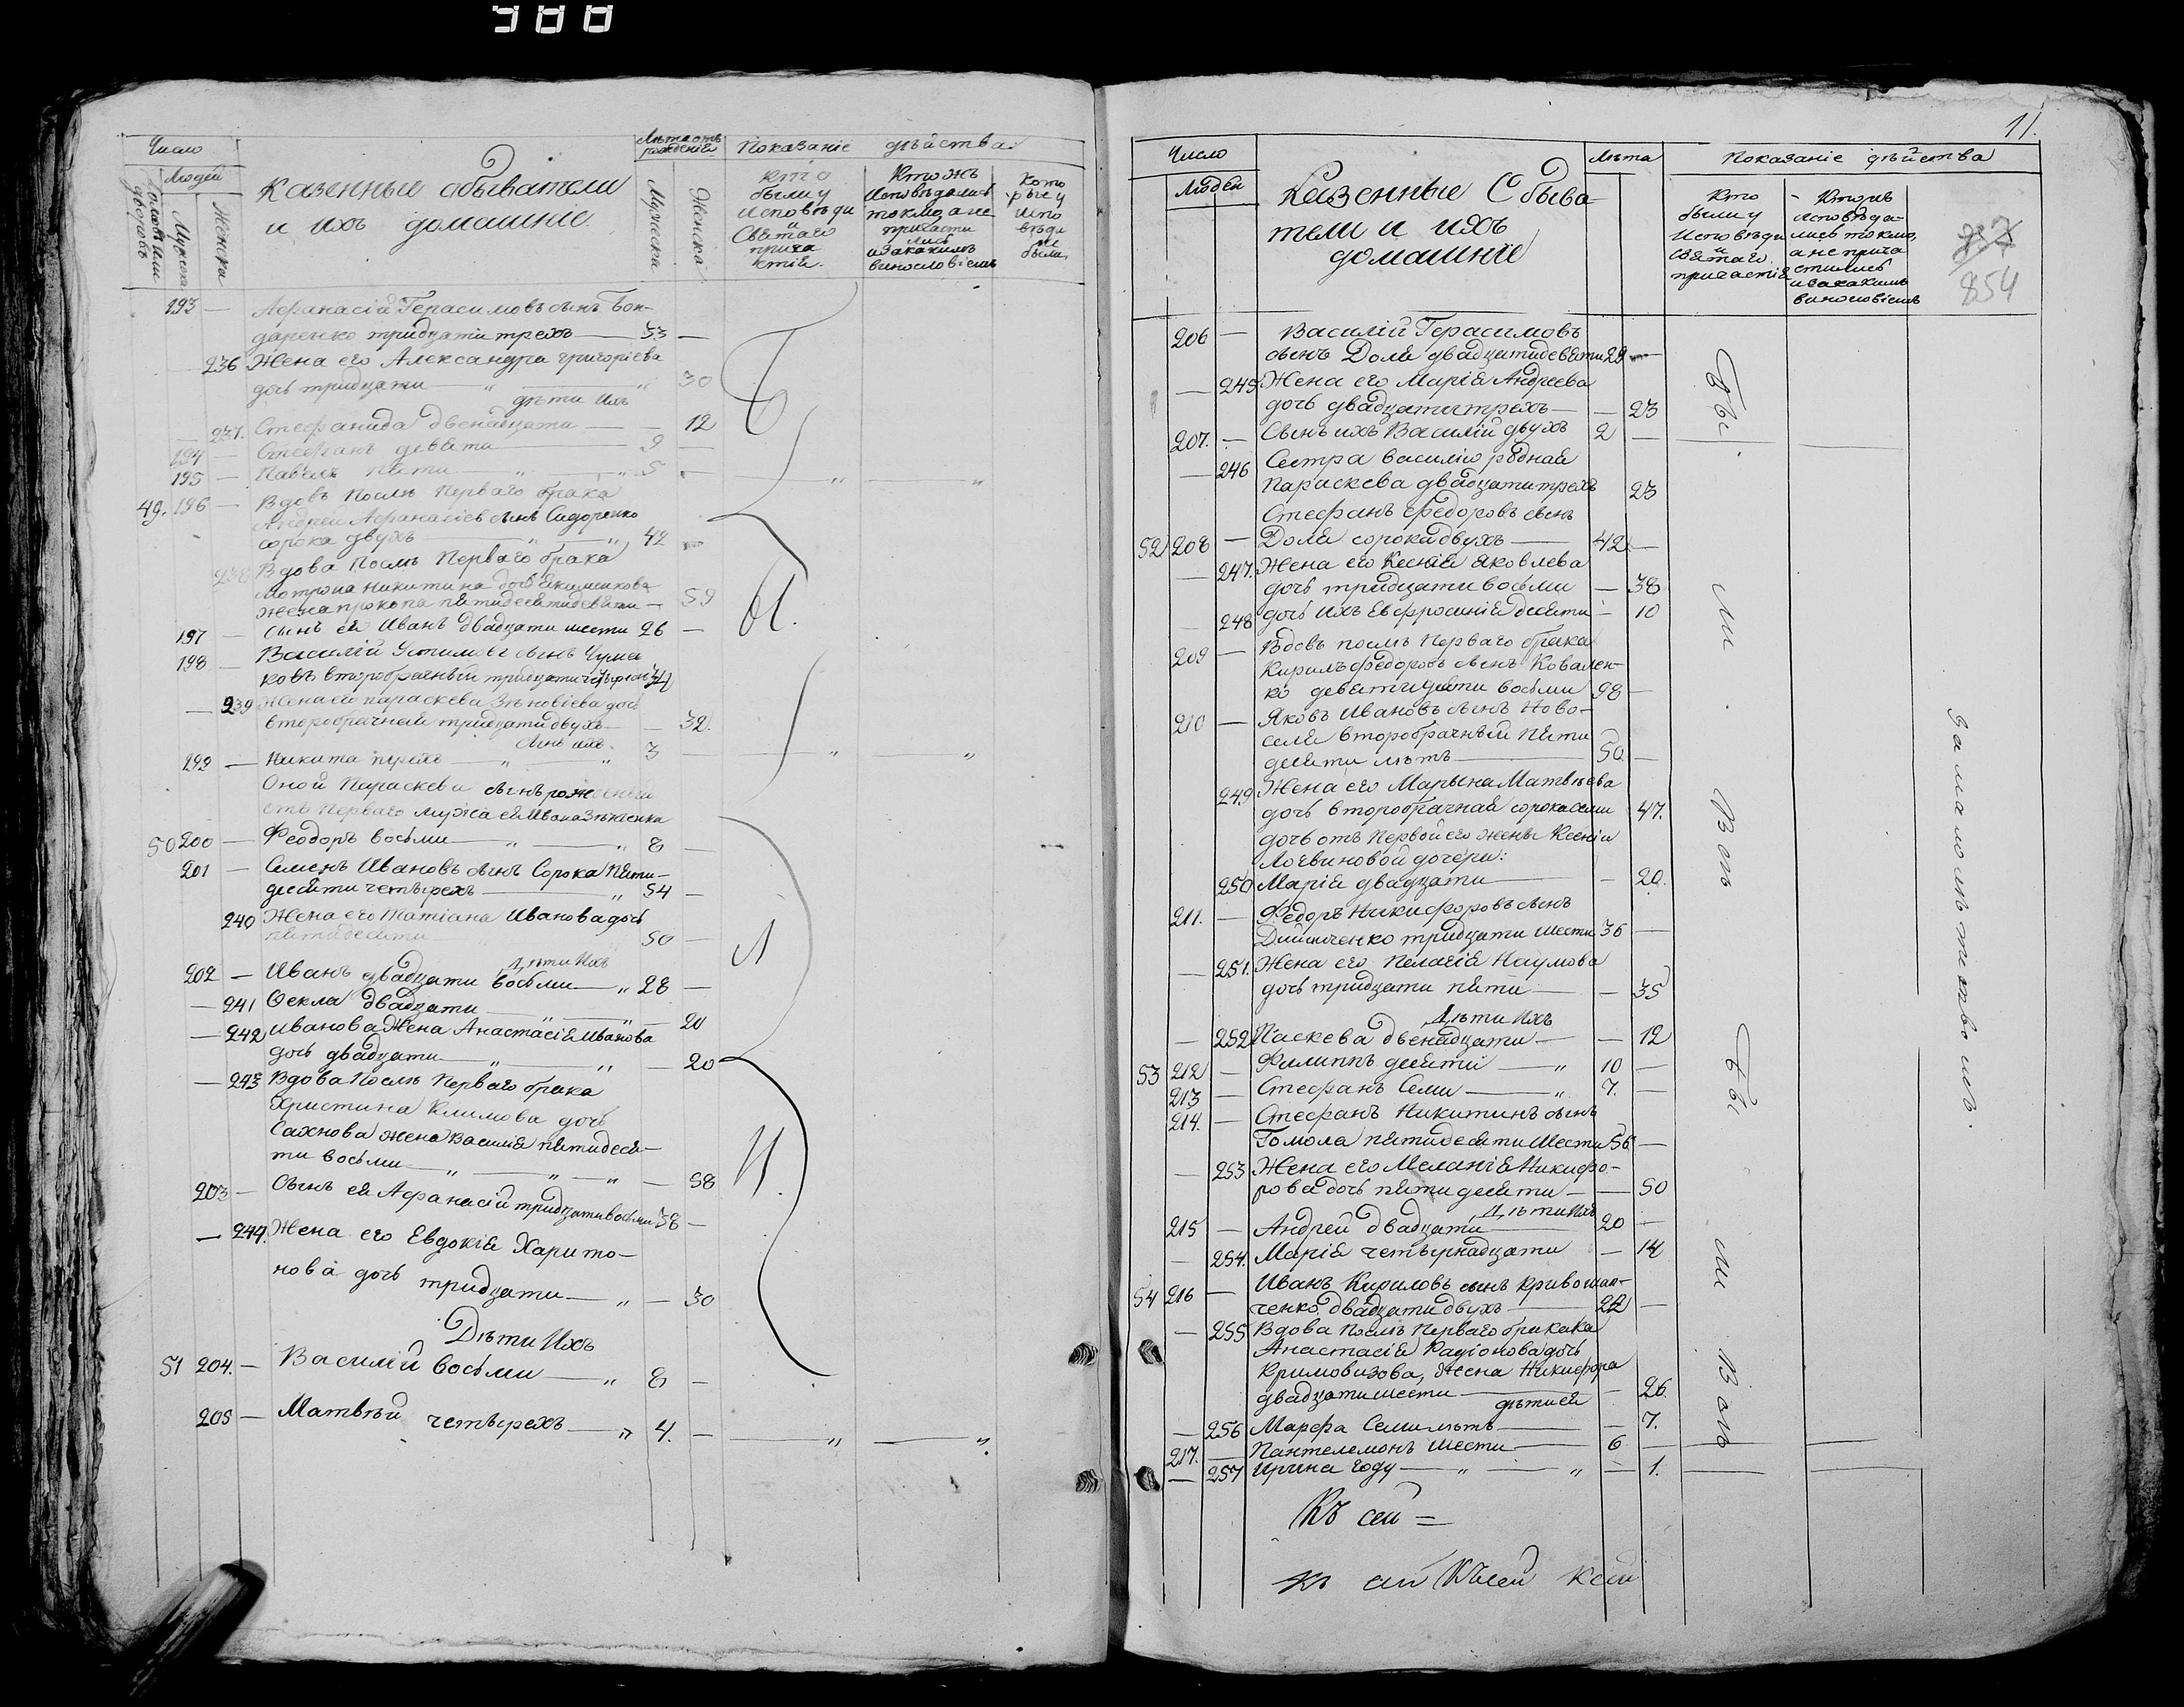 388
Число
Людей
Мужеска
Женска
Казенные обыватели
и ихъ домашніе
Лѣта отъ
рожденія
Мужеска
Женска
Показаніе дѣйства
кто
были у
исповѣди
и
святаго
прича
стія.
кто жъ
исповѣдались
токмо, а не
причасти
лись
и за какимъ
винословіемъ
кото
рые у
испо
вѣди
не
были
193 — Афанасій Герасимовъ сынъ Бон-
даренко тридцати трехъ — 33 —
— 236 Жена его Александра Григоріева
дочь тридцати — „ — „ 30
дѣти ихъ
— 237. Стефанида двенадцати — — 12
194 — Стефанъ девяти — 9 —
195 — Павелъ пяти — „ — „ 5 — „ — „
49. 196 — Вдовъ послѣ перваго брака
Андрей Афанасіевъ сынъ Сидоренко
сорока двухъ — „ — „ 42
238 Вдова послѣ перваго брака
Мотрона Никитина дочь
жена Прокопа пятидесятидевяти — 59
197 — сынъ ея Иванъ двадцати шести 26 —
198 — Василій Устимовъ сынъ Чума
ковъ второбрачный тридцати четырехъ 34
— 239 Жена его Параскева Зѣновіева дочь
второбрачная тридцати двухъ — — 32.
сынъ ихъ
199 — Никита трехъ — „ — „ 3 — „ — „
Оной Параскевы сынъ рожденный
отъ перваго мужа ея Ивана
50 200 — Феодоръ восьми — „ — „ 8 —
201 — Семенъ Ивановъ сынъ Сорока пяти-
десяти четырехъ — „ 54 —
240 Жена его Татіана Иванова дочь
пятидесяти — 50 —
Дѣти ихъ
202 — Иванъ двадцати восьми — „ 28 —
— 241 Фекла двадцати — „ — „ — 20
— 242 Иванова жена Анастасія Иванова
дочь двадцати — „ — „ — 20
— 243 Вдова послѣ перваго брака
Христина Климова дочь
Сахнова жена Василія пятидеся-
ти восьми — „ — „ — „ — 58
203 — Сынъ ея Афанасій тридцати восьми 38 —
— 244. Жена его Евдокія Харито-
нова дочь тридцати — „ — 30
Дѣти ихъ
51 204. — Василій восьми — „ 8 —
205 — Матвѣй четырехъ — „ 4. — „ — „
Б
ы
л
и
11.
Число
Людей
Казенные Обыва-
тели и ихъ
домашніе
Лѣта
Показаніе дѣйства
Кто
были у
исповѣди
и
святаго
причастія
Кто жъ
исповѣда-
лись токмо,
а не прича
стились
и за какимъ
винословіемъ
854
206 — Василій Герасимовъ
сынъ Доля двадцатидевяти 29 —
— 245 Жена его Марія Андреева
дочь двадцати трехъ — — 23
207. — Сынъ ихъ Василій двухъ 2 —
— 246 Сестра Василію родная
Параскева двадцати трехъ 23
Стефанъ Федоровъ сынъ
52 208 — Доля сорока двухъ — 42 —
— 247. Жена его Ксенія Яковлева
дочь тридцати восьми — 38
— 248 дочь ихъ Евфросинія десяти — 10
209 — Вдовъ послѣ перваго брака
Кирилъ Федоровъ сынъ Ковален-
ко девятидесяти восьми 98 —
210 — Яковъ Ивановъ сынъ Ново-
селя второбрачный пяти
десяти лѣтъ — 50 —
249 Жена его Марына Матвѣева
дочь второбрачная сорока семи 47.
дочь отъ первой его жены Ксеніи
Логвиновой дочери:
250 Марія двадцати — — 20.
211. — Федоръ Никифоровъ сынъ
тридцати шести 36 —
— 251. Жена его Пелагія Наумова
дочь тридцати пяти — — 35
Дѣти ихъ
— 252 Паскева двенадцати — — 12
53 212 — Филиппъ десяти — „ 10 —
213 — Стефанъ семи — „ 7. —
214. — Стефанъ Никитинъ сынъ
Гомола пятидесяти шести 56 —
— 253 Жена его Меланія Никифо-
рова дочь пятидесяти — — 50
Дѣти ихъ
215 — Андрей двадцати — 20 —
— 254. Марія четырнадцати — 14
54 216 — Иванъ Кириловъ сынъ Кривошап-
ченко двадцати двухъ — 22 —
— 255 Вдова послѣ перваго брака
Анастасія Радіонова дочь
Кримовизова, жена Никифора
двадцати шести — — 26
дѣти ея
— 256 Марфа семи лѣтъ — — 7.
217. — Пантелемонъ шести — 6 —
— 257 Ирина году — „ — „ — 1.
Бы
ли
Вси
Бы
ли
Вси
За малолѣтствомъ.
Къ сей =
къ сей Къ сей Къ сей